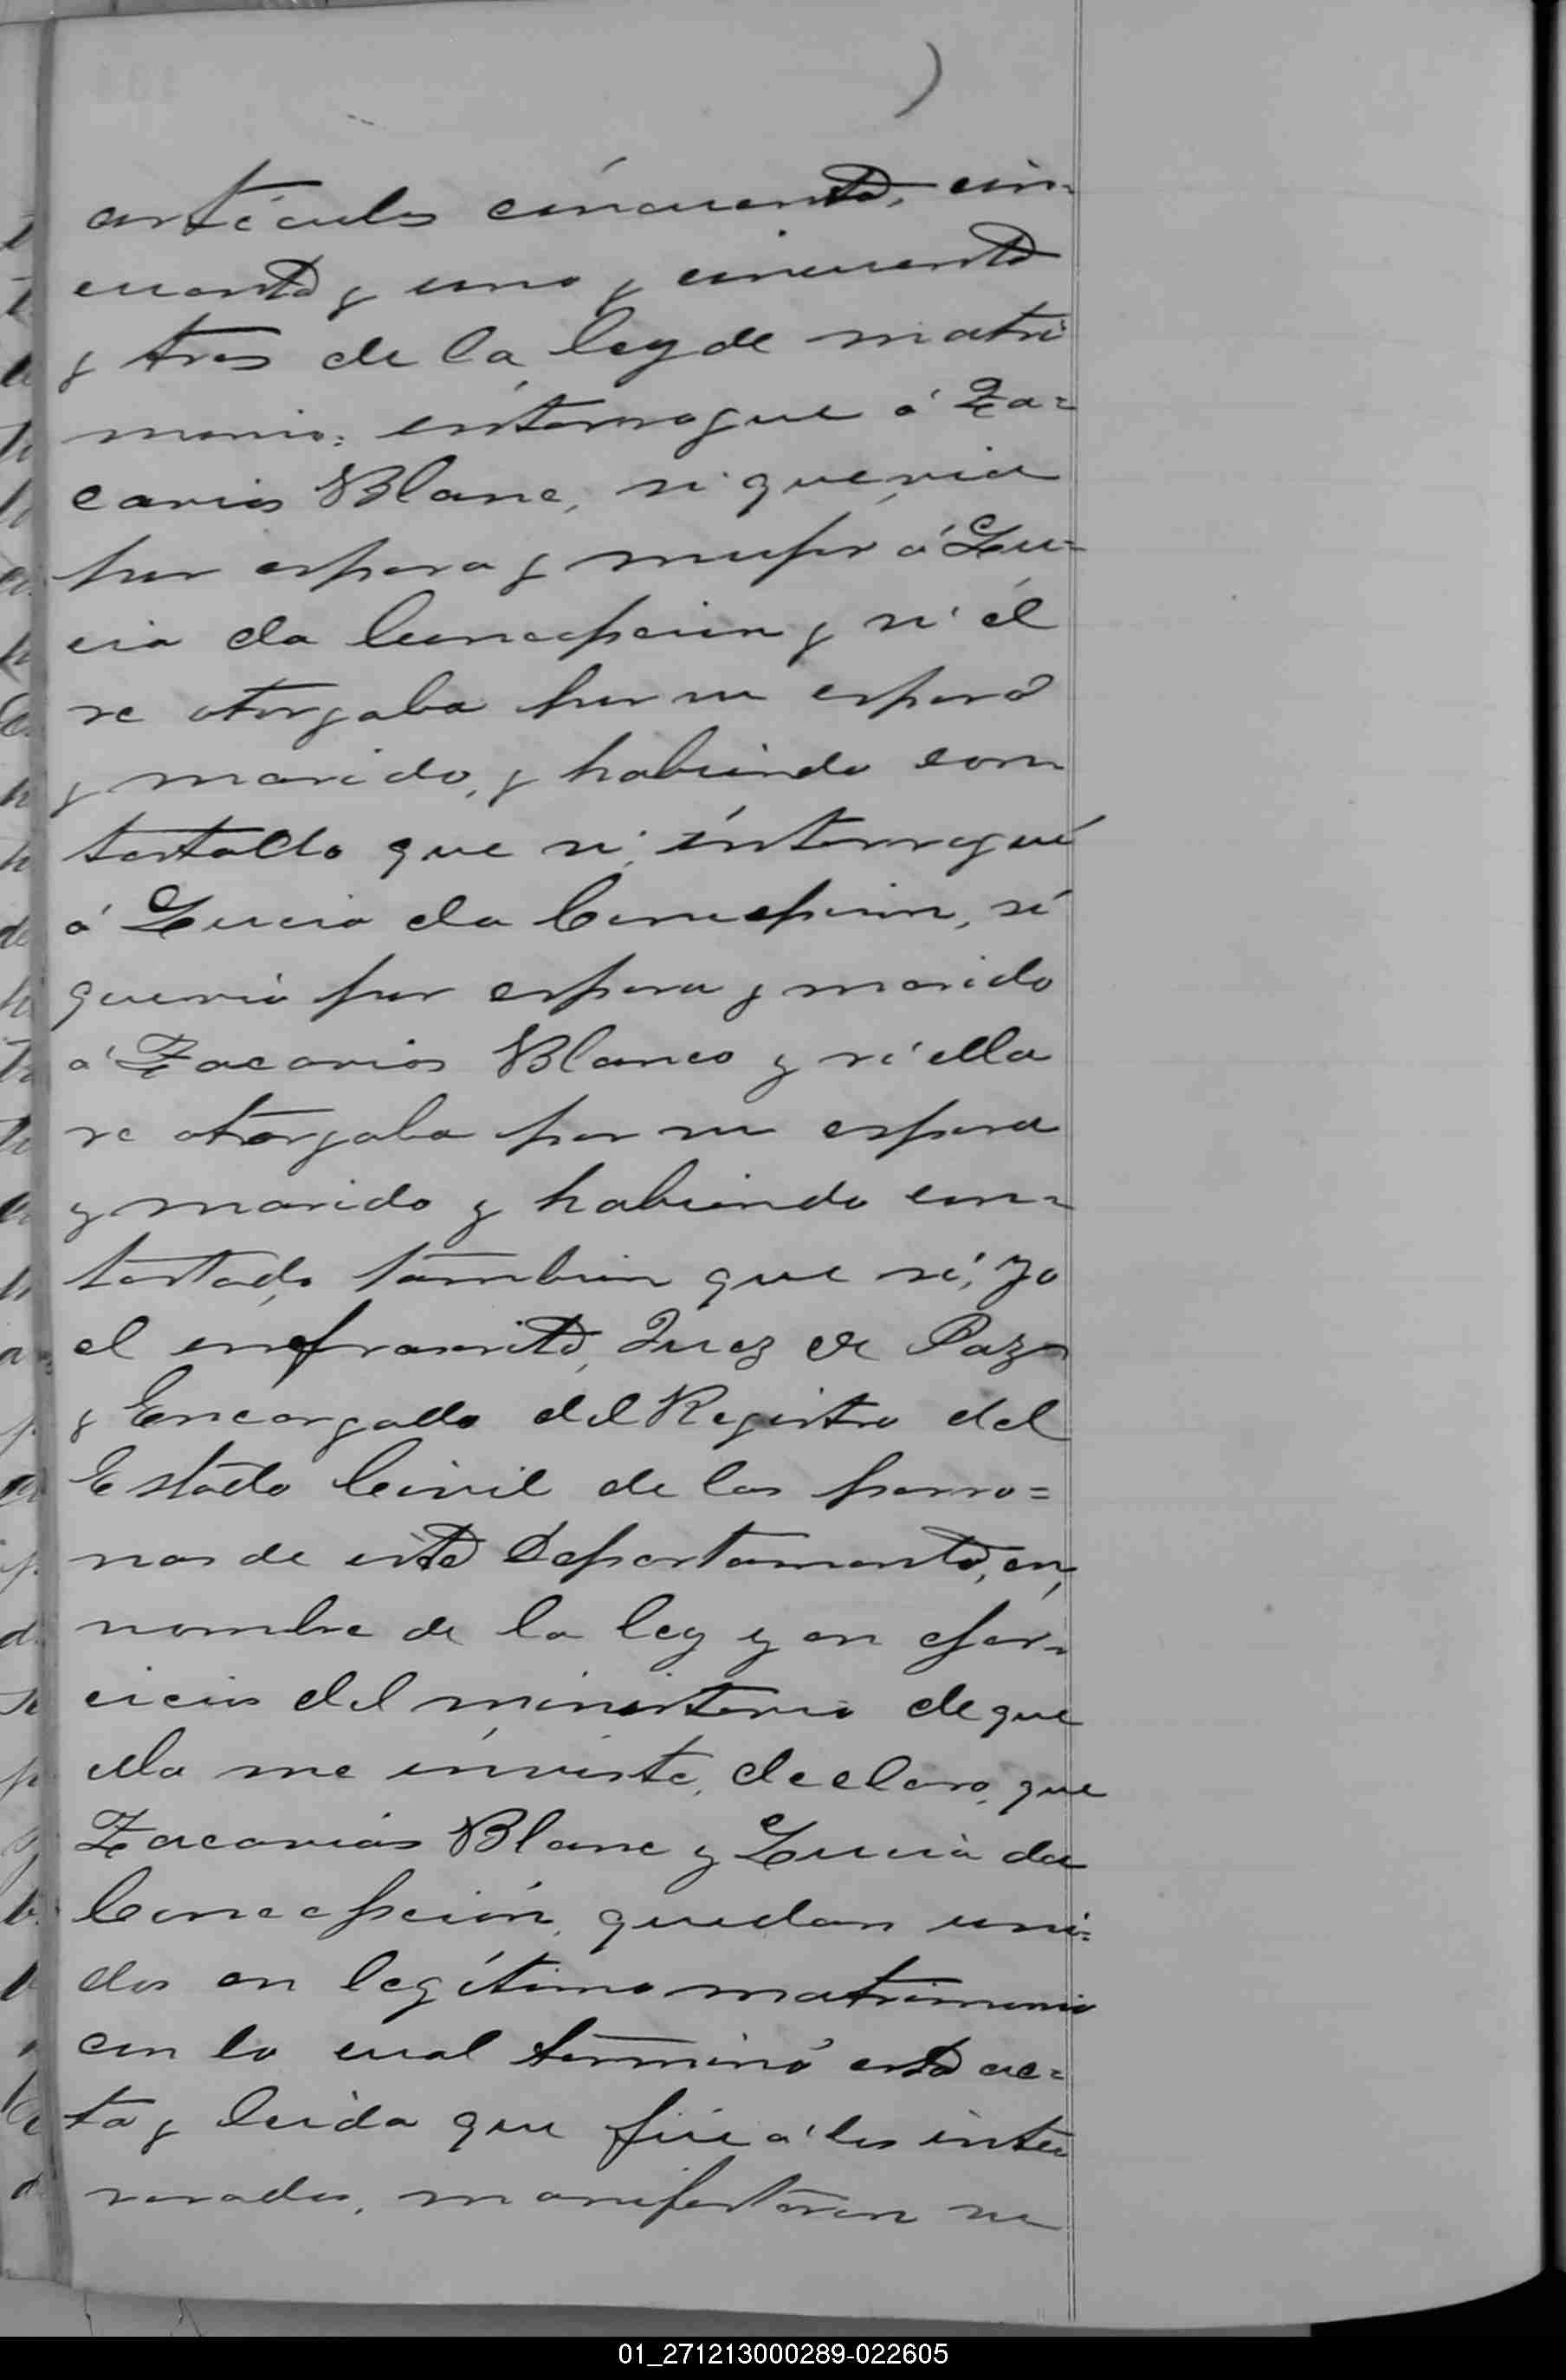 artículos cincuenta, cin-
cuenta y uno y cincuenta
y tres de la ley de matri
monio: interrogue á Za=
carias Blanc, si queria
por esposa y mujer á Lu=
cia da Concepcion y si él
se otorgaba por su esposo
y marido, y habiendo con
testado que si, interrogué
á Lucia da Concepcion, si
queria por esposo y marido
á Zacarias Blanco y si ella
se otorgaba por su esposa
y marido y habiendo con=
testado tambien que sí, yo
el infrascrito, Juez de Paz
y Encargado del Registro del
Estado Civil de las perso=
nas de este Departamento, en
nombre de la ley y en ejer-
cicios del ministerio de que
ella me inviste, declaro, que
Zacarias Blanc y Lucia da
Concepción, quedan uni=
dos en legítimo matrimonio
con lo cual terminó esta ac=
ta y leida que fué á los inte
resados, manifestaron su
01_271213000289-022605